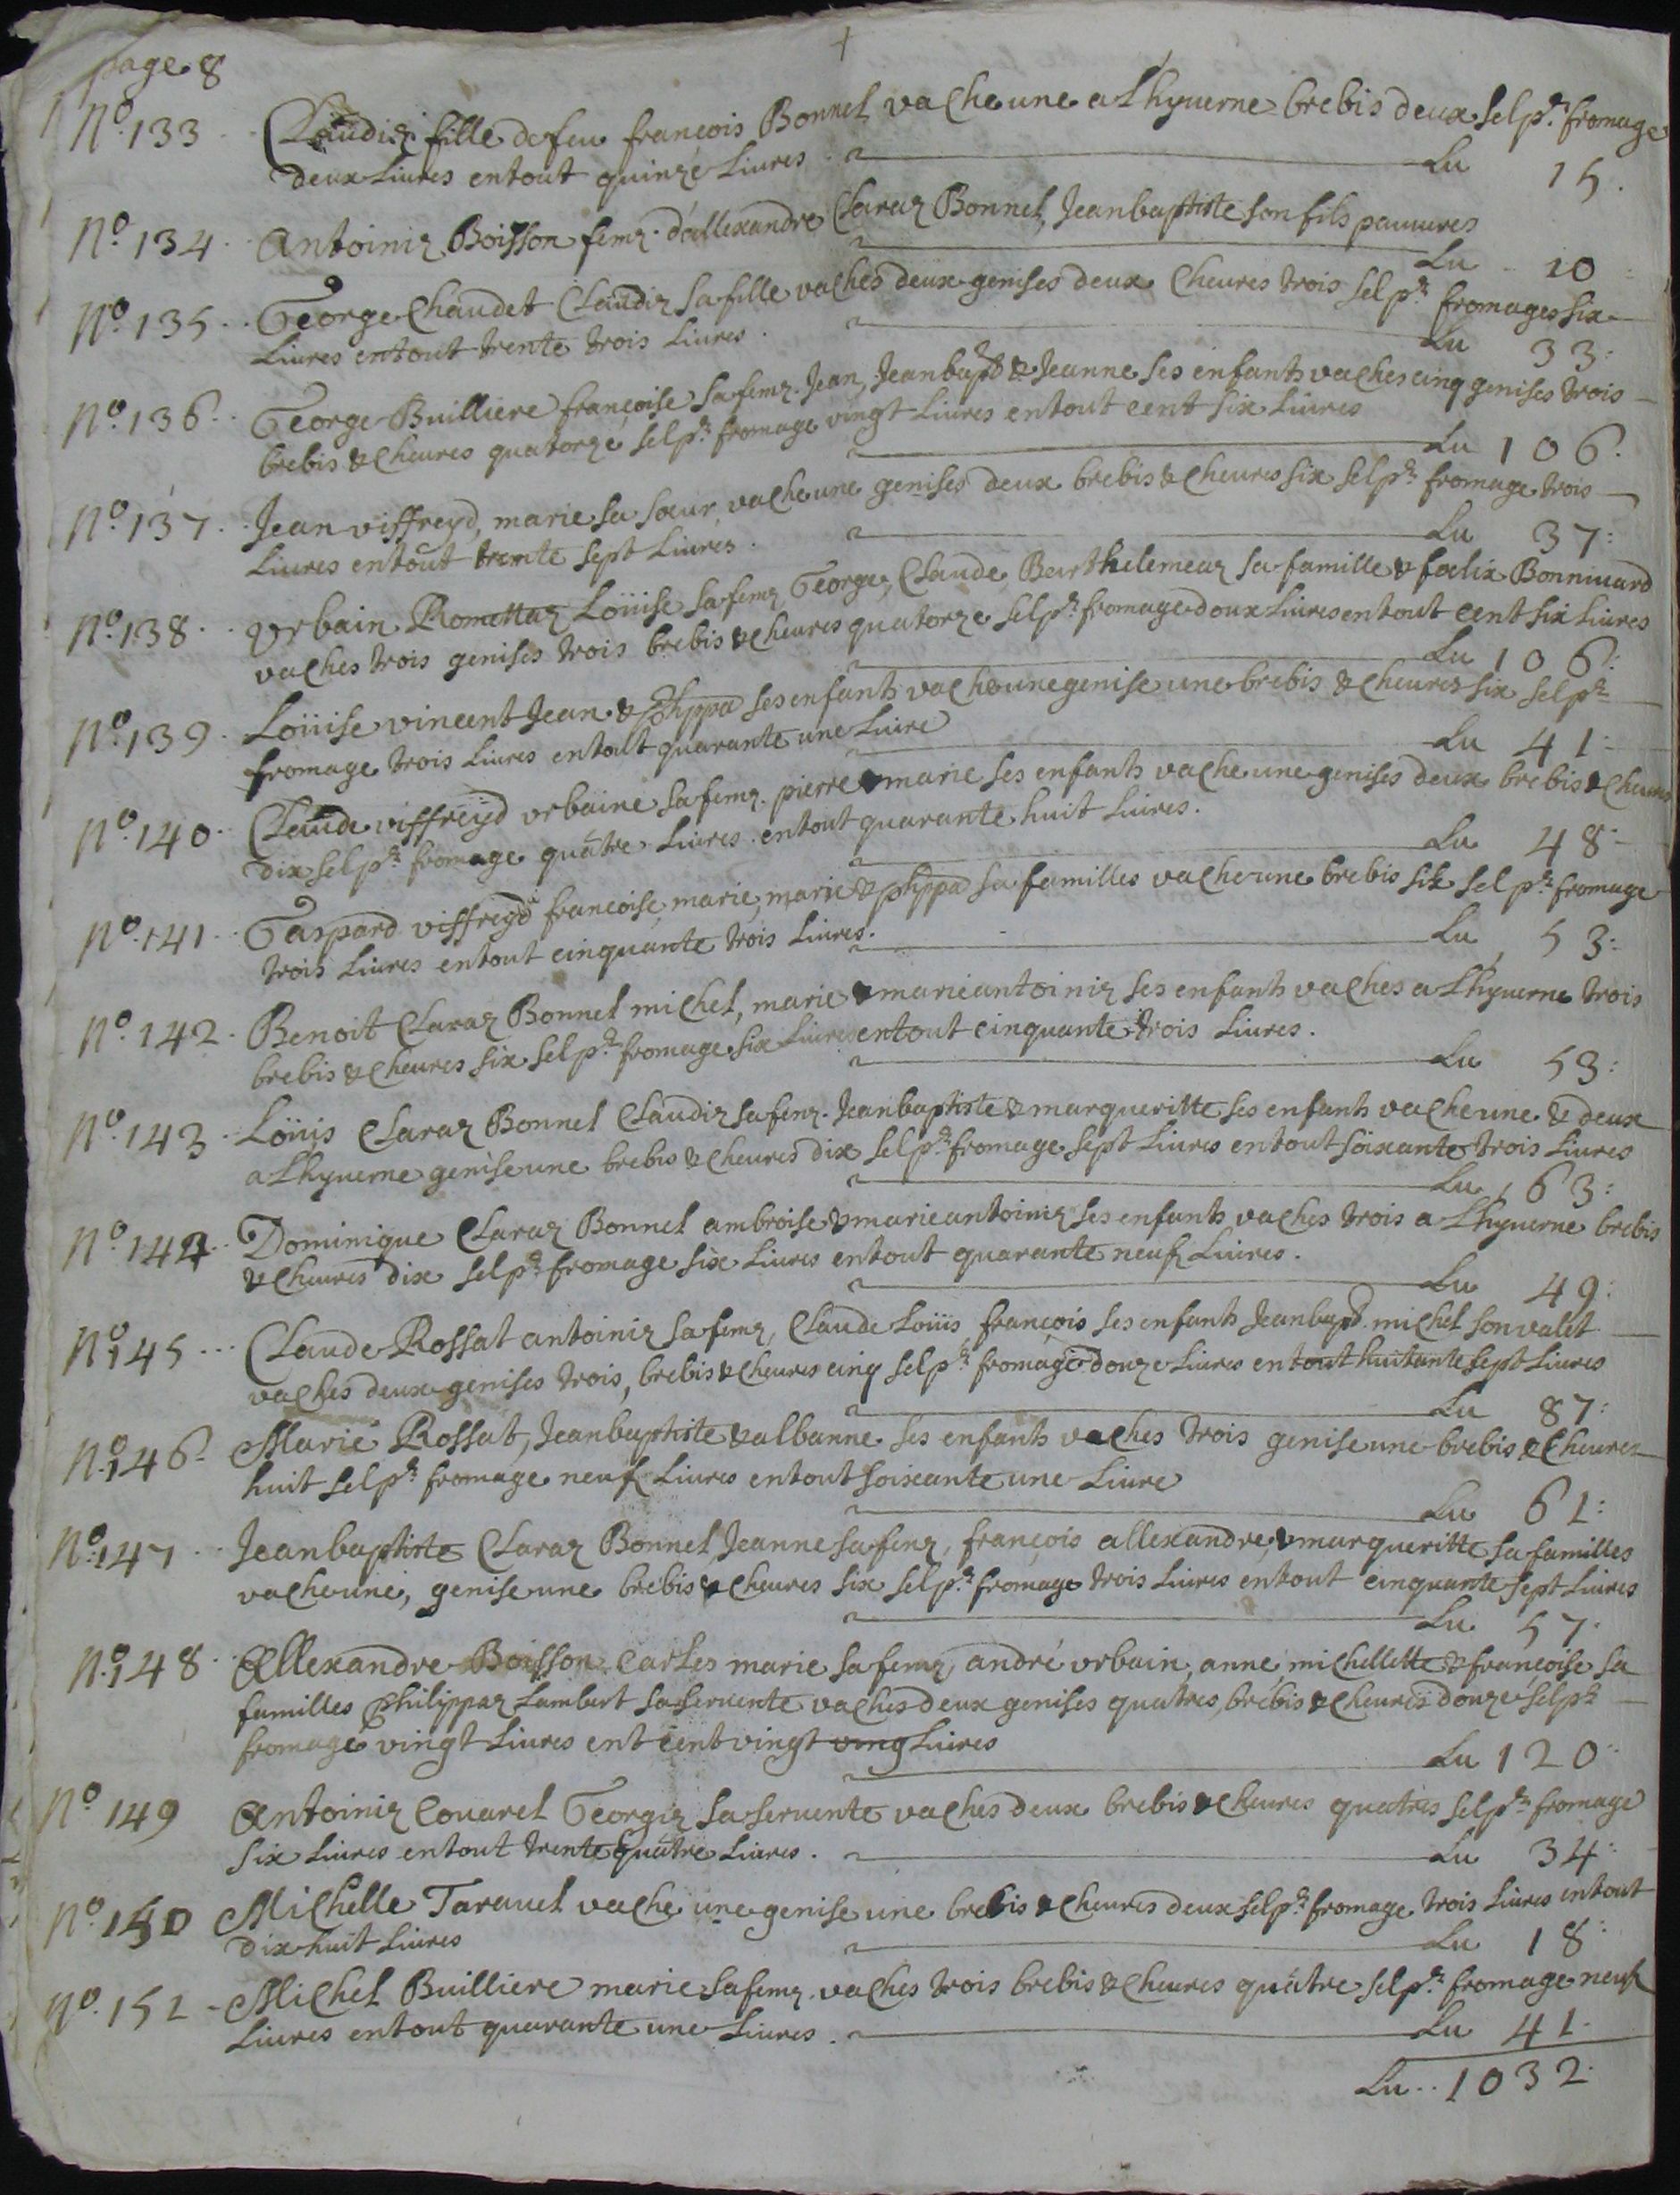 page 8
N.º 133 Claudiz fille defeu francois Bonnel vache une a Lhyuerne brebis deux selp.r fromage
deux Liures entout quinze Liures . Lu 15.
N.º 134 Antoiniz Boisson femz. d'allexandre Claraz Bonnel, Jeanbaptiste son fils pauures
Lu 10
N.º 135 George Chaudet Claudiz sa fille vaches deux genises deux Cheures trois selp.r fromages six
Liures entout trente trois Liures . Lu 33:
N.º 136 George Builliere francoise sa femz. Jean, Jeanbapt & Jeanne ses enfants vaches cinq genises trois
brebis & Cheures quatorze selp.r fromage vingt Liures entout cent six Liures
Lu 106.
N.º 137 Jean viffreyd, marie sa soeur vache une genises deux brebis & Cheures six selp.r fromage trois
Liures entout trente sept Liures . Lu 37:
N.º 138 vrbain Romettaz Loüise sa femz George, Claude, Barthelemeaz sa famille & foelix Bonniuard
vaches trois genises trois brebis & Cheures quatorze selp.r fromage doux Liures entout cent six Liures
Lu 106:
N.º 139 Loüise vincent Jean & Phppa ses enfants vache une genise une brebis & Cheures six selp.r
fromage trois Liures entout quarante une Liure Lu 41:
N.º 140 Claude viffreyd vrbaine sa femz. pierre & marie ses enfants vache une genises deux brebis & Cheures
dix selp.r fromage quatre Liures . entout quarante huit Liures. Lu 48
N.º 141 Gaspard viffreyd francoise, marie, marie & phppa sa familles vache une brebis six selp.r fromage
trois Liures entout cinquante trois Liures. Lu 53:
N.º 142 Benoit Claraz Bonnel michel, marie & marieantoiniz ses enfants vaches a Lhyuerne trois
brebis & Cheures six selp.r fromage six Liures entout cinquante trois Liures.
Lu 53:
N.º 143 Loüis Claraz Bonnel Claudiz sa femz. Jeanbaptiste & margueritte ses enfants vache une & deux
a Lhyuerne genise une brebis & Cheures dix selp.r fromage sept Liures entout soixante trois Liures
Lu 63:
N.º 144 Dominique Claraz Bonnel ambroise & marieantoiniz ses enfants vaches trois a Lhyuerne brebis
& Cheures dix selp.r fromage six Liures entout quarante neuf Liures.
Lu 49:
N.º 145 Claude Rossat antoiniz sa femz, Claude Loüis, francois ses enfants Jeanbapt. michel son valet
vaches deux genises trois, brebis & Cheures cinq selp.r fromage douze Liures entout huitante sept Liures
Lu 87:
N.º 146 Marie Rossat, Jeanbaptiste & albanne ses enfants vaches trois genise une brebis & Cheures
huit selp.r fromage neuf Liures entout soixante une Liure
Lu 61:
N.º 147 Jeanbaptiste Claraz Bonnel, Jeanne sa femz, francois allexandre, & margueritte sa familles
vache une, genise une brebis & Cheures six selp.r fromage trois Liures entout cinquante sept Liures
Lu 57.
N.º 148 Allexandre Boisson Carles marie sa femz, andré vrbain, anne, michellette & francoise sa
familles Philippaz Lambert sa seruente vaches deux genises quatres, brebis & Cheures douze selp.r
fromage vingt Liures ent cent vingt ving Liures Lu 120
N.º 149 Antoiniz Couarel Georgiz sa seruente vaches deux brebis & Cheures quatres selp.r fromage
six Liures entout trente quatre Liures. Lu 34:
N.º 150 Michelle Tarauel vache une genise une brebis & Cheures deux selp.r fromage trois Liures entout
dix huit Liures Lu 18:
N.º 151 Michel Builliere marie sa femz. vaches trois brebis & Cheures quatre selp.r fromage neuf
Liures entout quarante une Liures. Lu 41.
Lu .. 1032